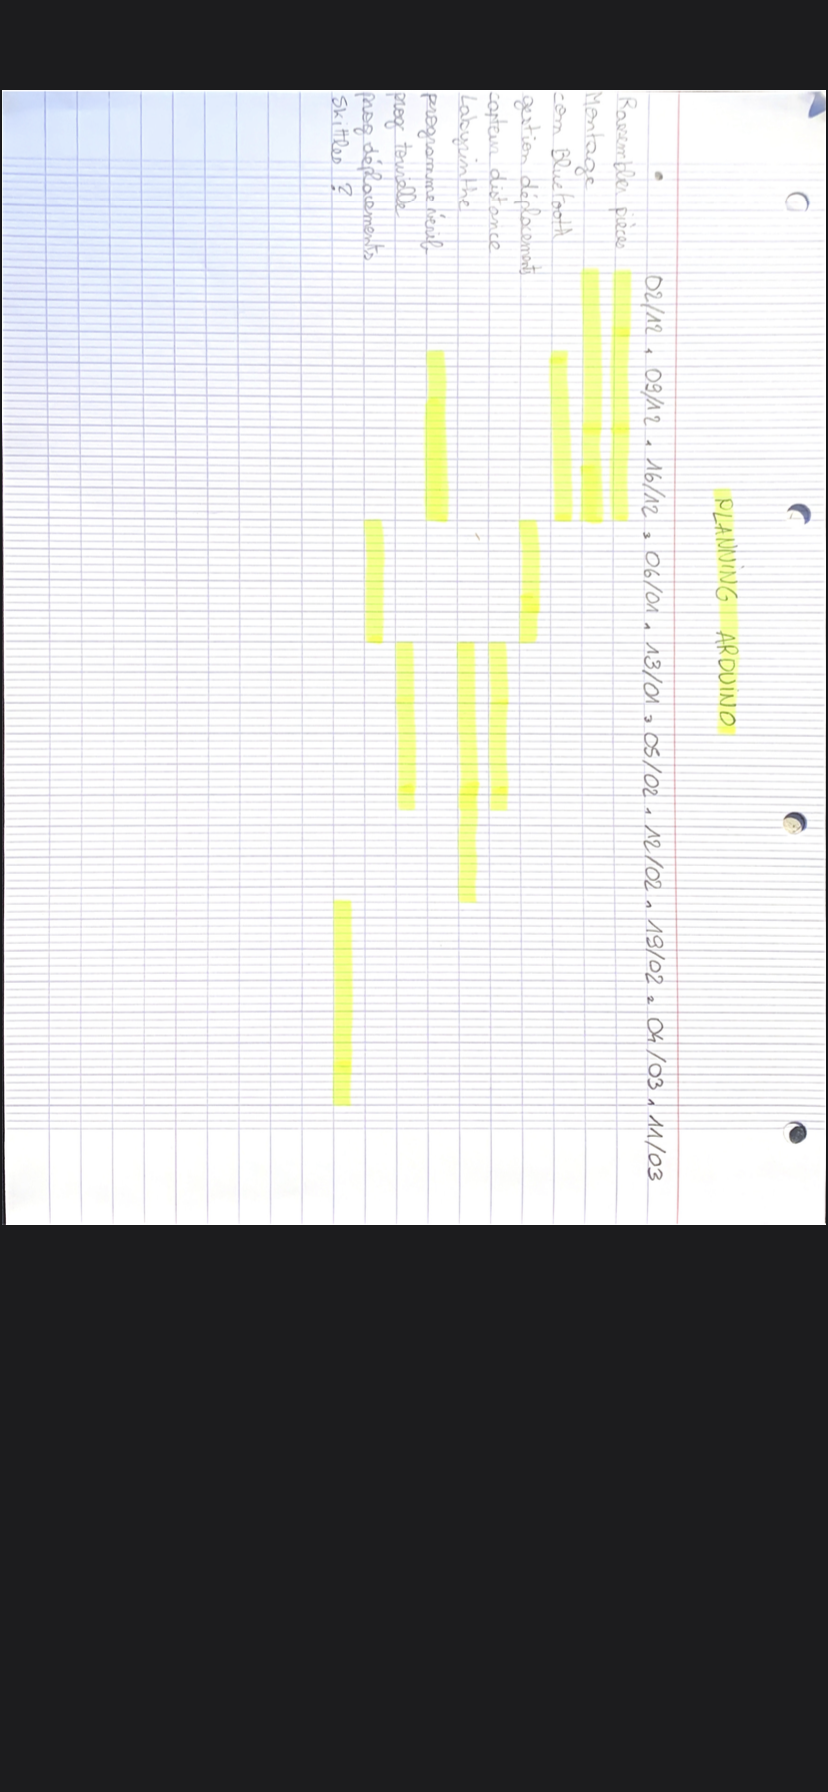 PLANNING ARDUINO
02/12 09/12 16/12 06/01 13/01 05/02 12/02 19/02 04/03 11/03
Rassembler pièces
Montage
com Bluetooth
gestion déplacements
capteur distance
Labyrinthe
programme
prog tourelle
prog déplacements
Skittles ?